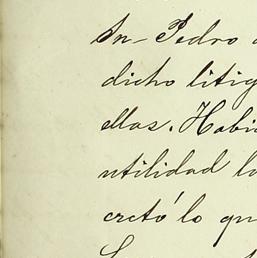 Sn. Pedro
dicho litig
ellas. Habi
utilidad lo
cretó lo qu